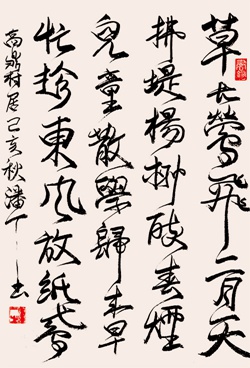 草長鶯飛二月天
拂堤楊柳醉春煙
兒童散學歸来早
忙趁東风放紙鳶
高鼎村居己亥秋潘丁一书